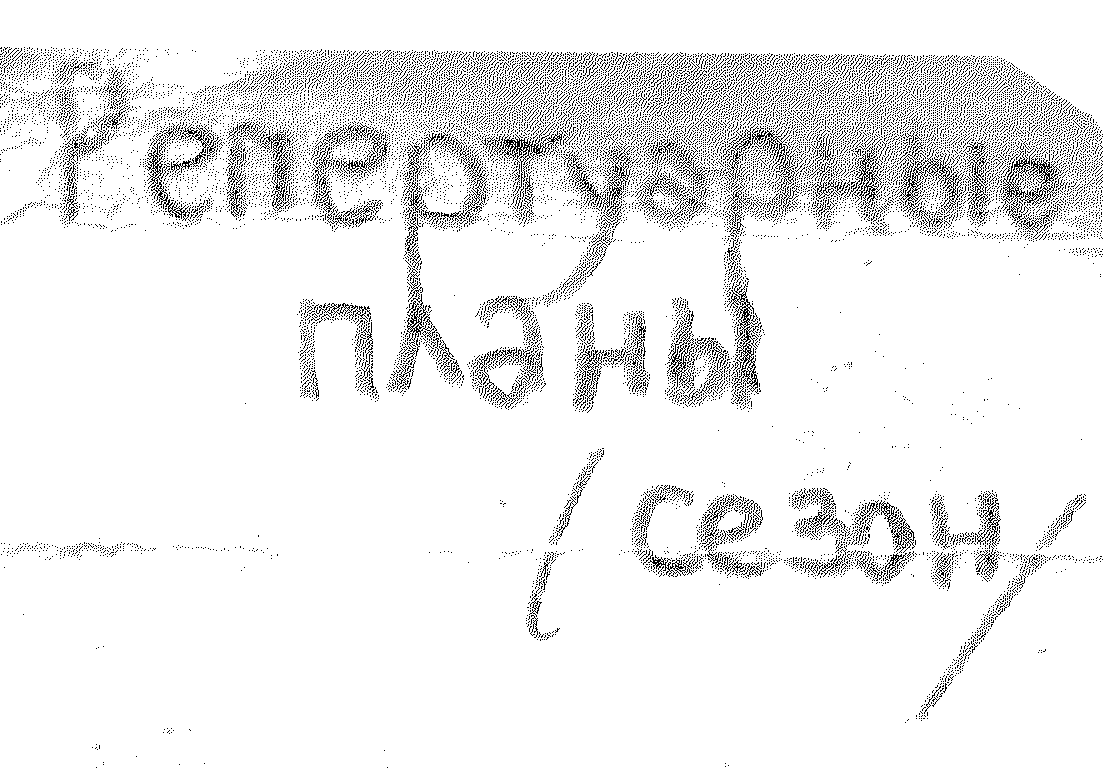 Репертуарные
планы
(сезон)